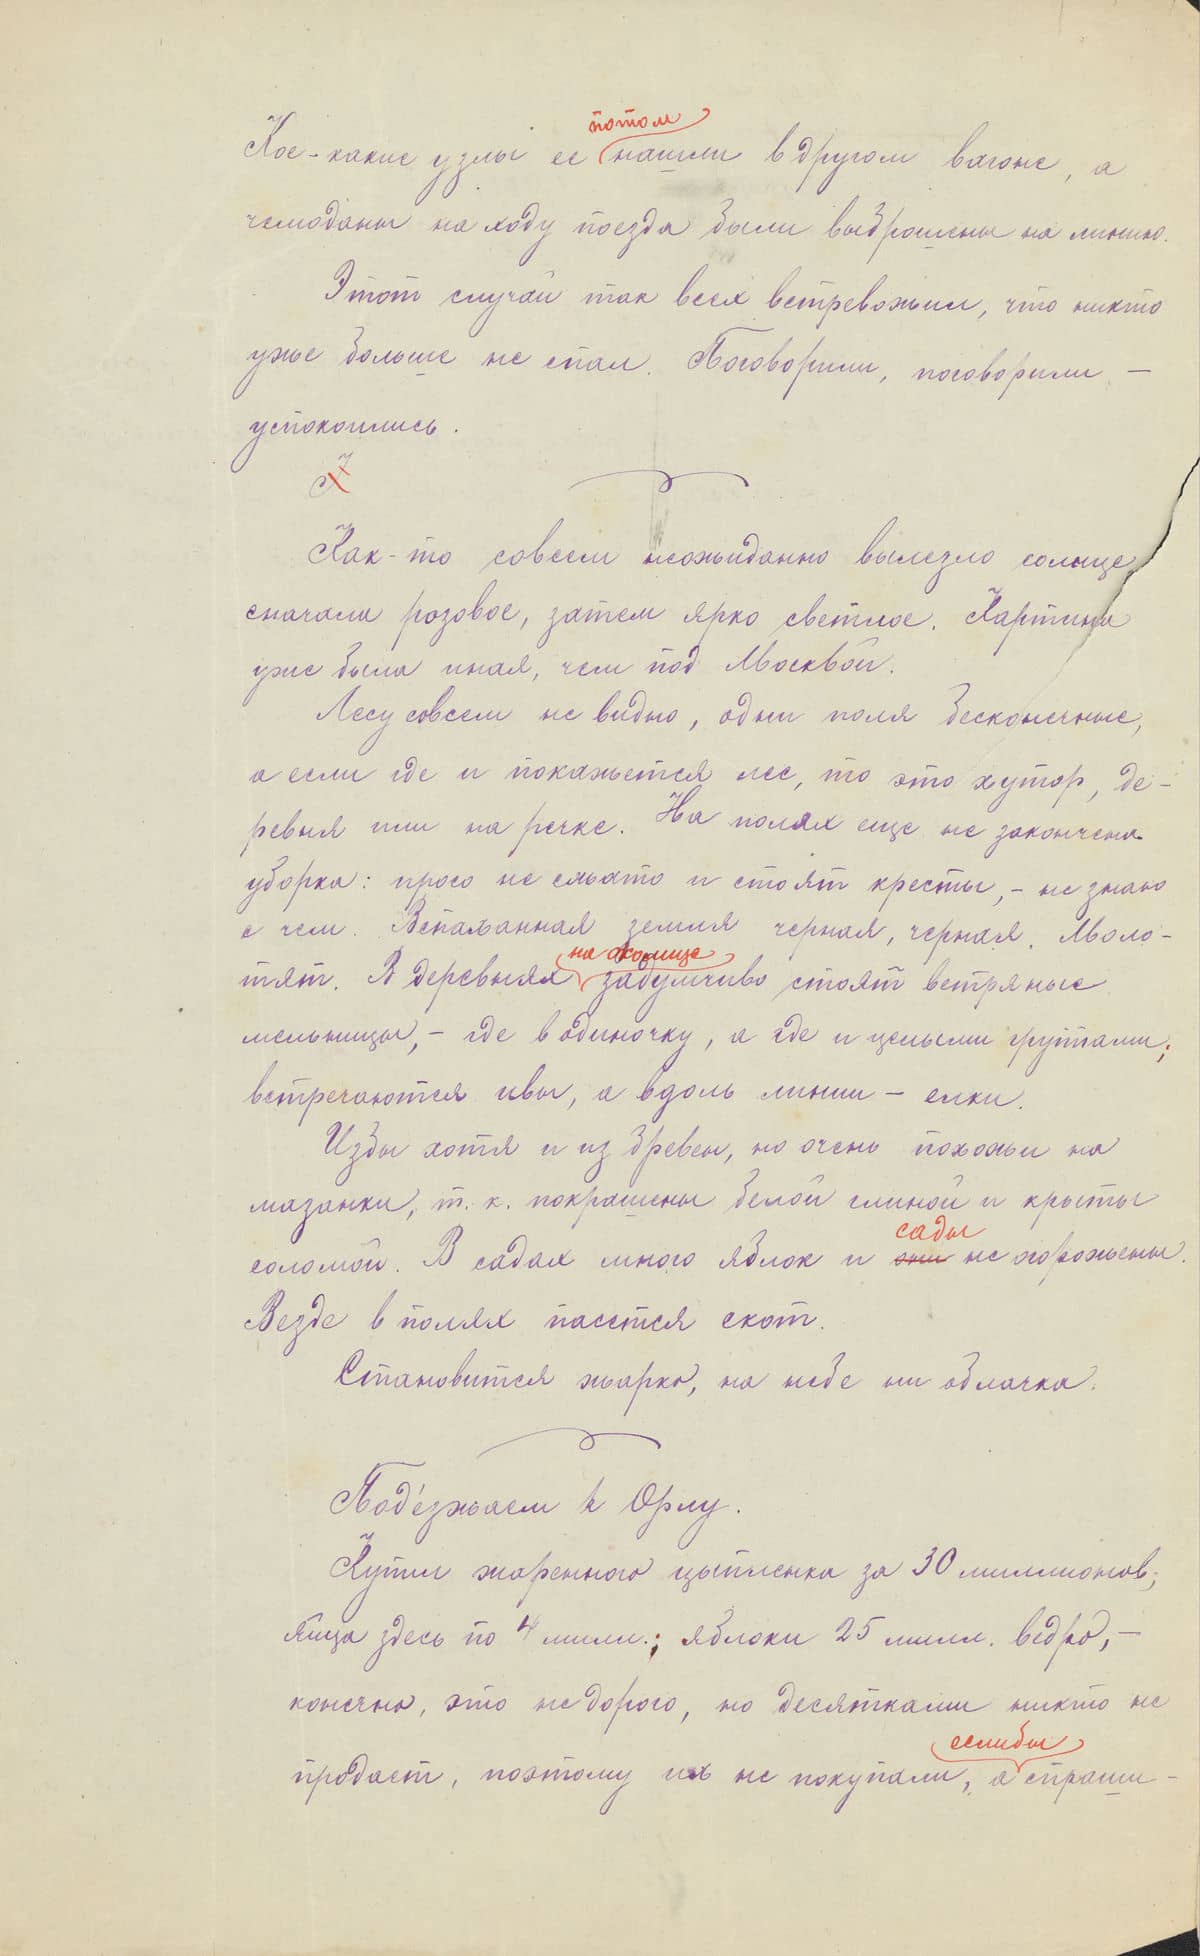 потом
Кое-какие узлы ее нашли в другом вагоне, а
чемоданы на ходу поезда были выброшены на линию.
Этот случай так всех встревожил, что никто
уже больше не спал. Поговорили, поговорили —
успокоились.
Как-то совсем неожиданно вылезло солнце
сначала розовое, затем ярко светлое. Картина
уже была иная, чем под Москвой.
Лесу совсем не видно, одни поля бесконечные,
а если где и покажется лес, то это хутор, де-
ревня или на речке. На полях еще не закончена
уборка: просо не сжато и стоят кресты, - не знаю
с чем. Вспаханная земля черная, черная. Моло-
на околице
тят. В деревнях задумчиво стоят ветряные
мельницы, - где в одиночку, а где и целыми группами;
встречаются ивы, а вдоль линии - елки.
Избы хотя и из бревен, но очень похожи на
мазанки, т. к. покрашены белой глиной и крыты
сады
соломой. В садах много яблок и они не огорожены.
Везде в полях пасется скот.
Становится жарко, на небе ни облачка.
Под'езжаем к Орлу.
Купил жаренного цыпленка за 30 миллионов;
яйца здесь по 4 милл.; яблоки 25 милл. ведро, —
конечно, это не дорого, но десятками никто не
еслибы
продает, поэтому их не покупали, а спраши-